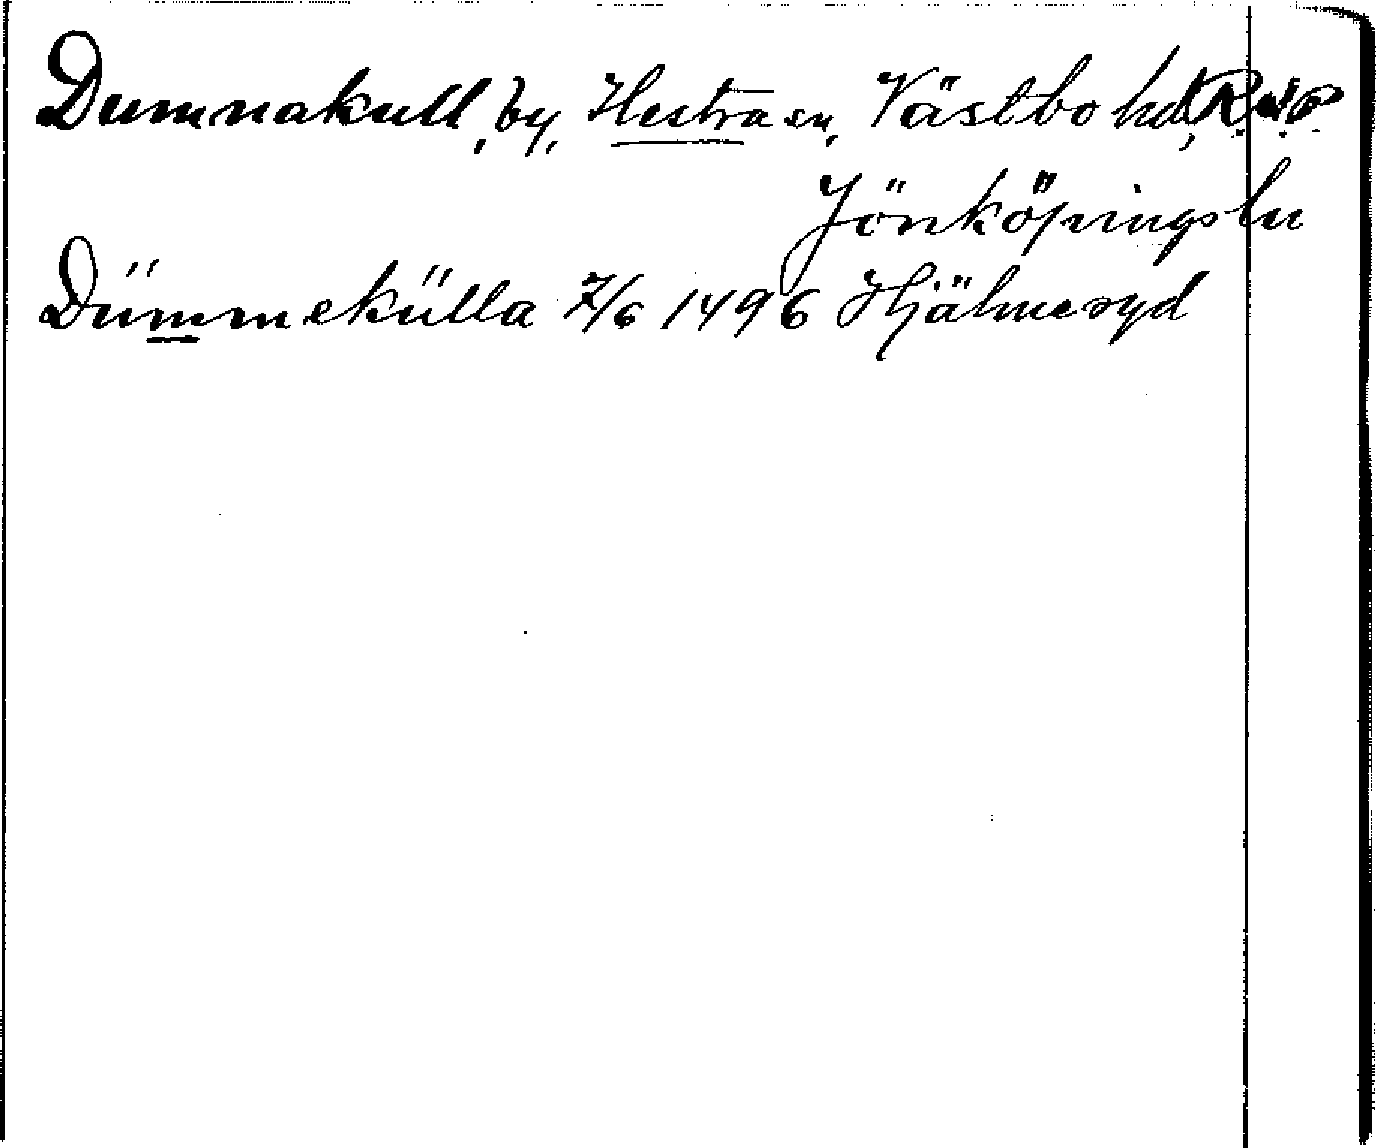 Dumnakull, by, Hestra sn, Västbo hd,
Jönköpings ln
Dümmekülla 7/6 1496 Hjälmseryd